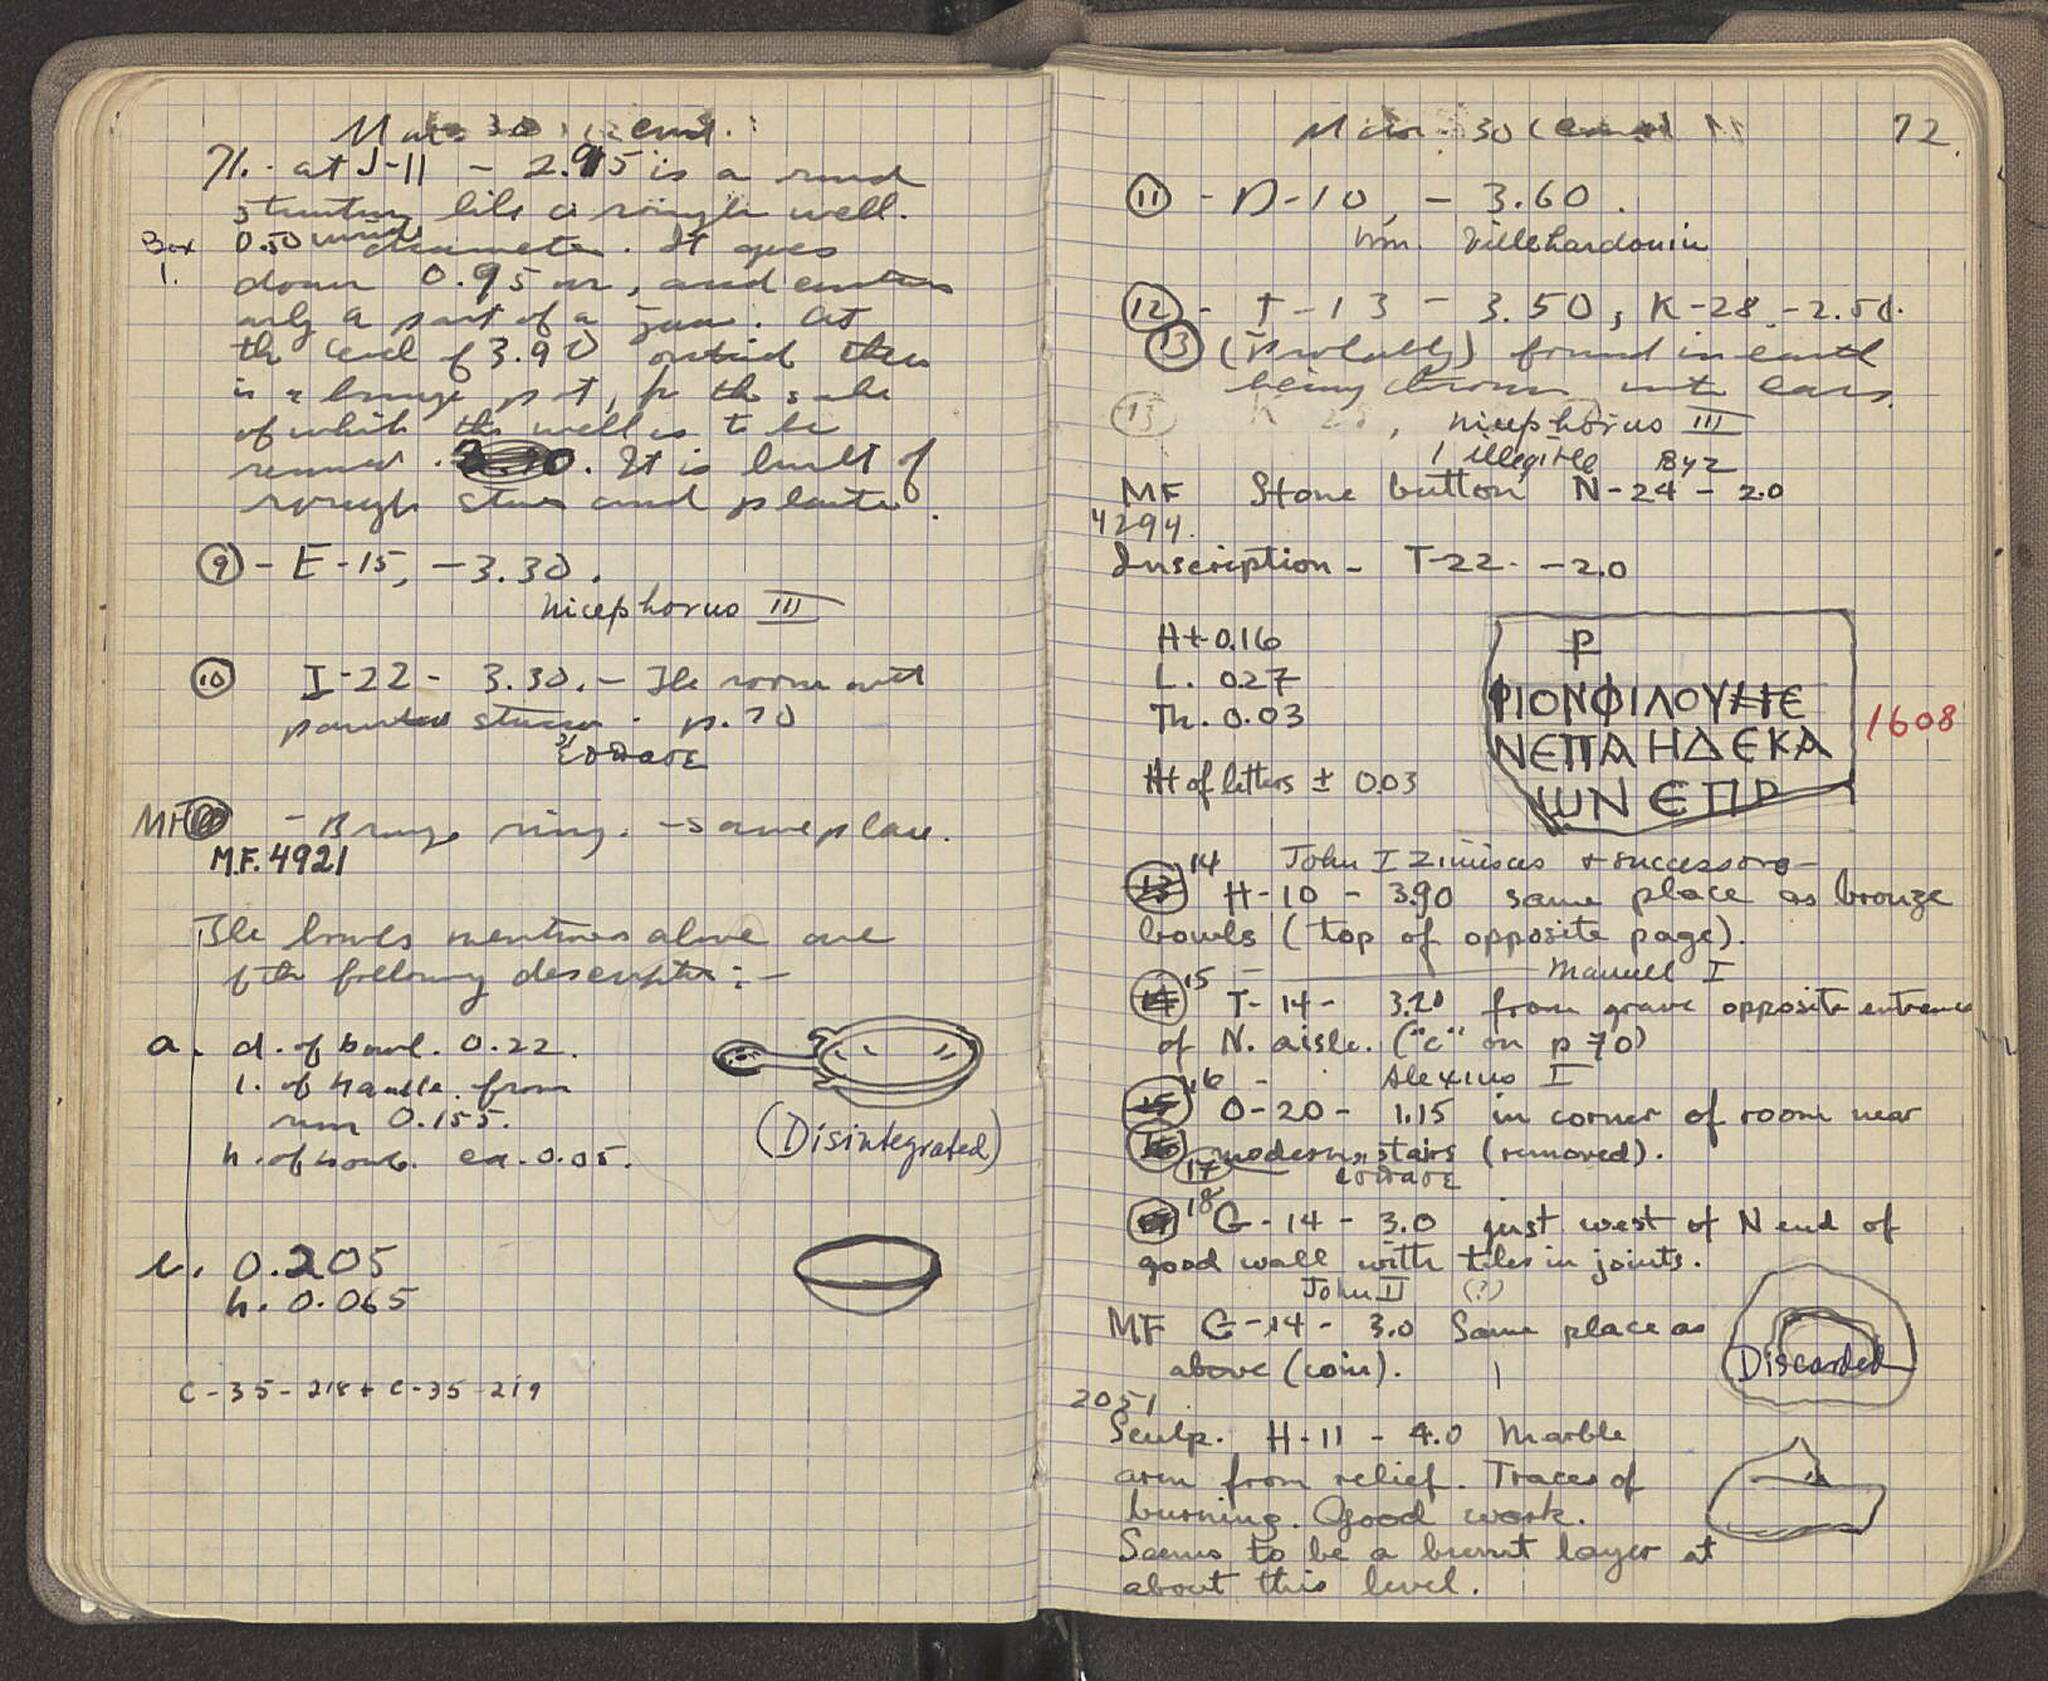 Mar. 30, cont.
71. at J-11 - 2.95 is a round
structure like a rough well.
Box 1.
0.50 diameter. It goes
down 0.95 m, and
only a part of a. At
the level of 3.90 outside there
is a bronze pot, for the sake
of which the well is to be
removed. It is built of
rough stones and plaster.
⑨ - E-15, -3.30.
Nicephorus III
⑩ I-22 - 3.30. - The room with
painted stucco. p. 70
MF - Bronze ring. - same place.
M.F. 4921
The bowls mentioned above are
of the following description: -
a. d. of bowl. 0.22.
l. of handle from
rim 0.155.
h. of bowl. ca. 0.05.
(Disintegrated)
0.205
h. 0.065
C-35-218 + C-35-219
Mar. 30 (cont.) 72.
⑪ - D-10, - 3.60.
Wm. Villehardouin
⑫ - T-13 - 3.50, K-28 -2.50.
⑬ (Probably) found in earth
being thrown into cars.
⑬ K 28, Nicephorus III
1 illegible Byz
MF Stone button N-24 - 2.0
4294.
Inscription - T-22. -2.0
Ht 0.16
L. 0.27
Th. 0.03
Ht of letters ± 0.03
Ρ
ΦΙΟΝΦΙΛΟΥΗΕ
ΝΕΠΑΗΔΕΚΑ
ΙωΝ ΕΠΡ
1608
14 John I Zimisces + successors -
13 H-10 - 3.90 same place as bronze
bowls (top of opposite page).
15 - Manuel I
14 T-14 - 3.20 from grave opposite entrance
of N. aisle. ("c" on p 70)
16 - Alexius I
15 O-20 - 1.15 in corner of room near
16 modern stairs (removed).
17
18 G-14 - 3.0 just west of N end of
good wall with tiles in joints.
John II (?)
MF G-14 - 3.0 Same place as
above (coin).
Discarded
2051
Sculp. H-11 - 4.0 Marble
arm from relief. Traces of
burning. Good work.
Seems to be a burnt layer at
about this level.